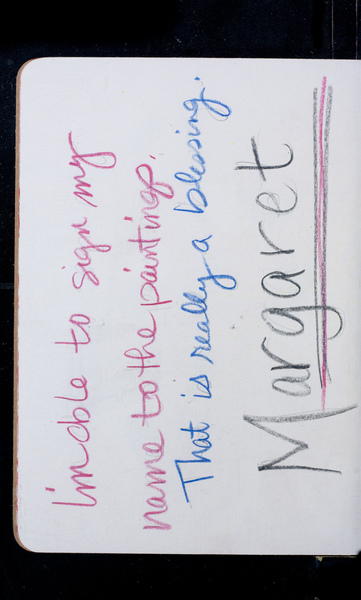 I'm able to sign my
name to the paintings.
That is really a blessing.
Margaret